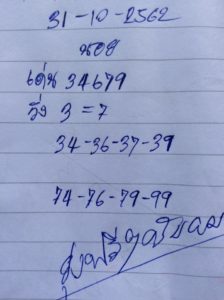 31-10-2562
นอย
เด่น 34679
วิ่ง 3=7
34-36-37-39
74-76-79-99